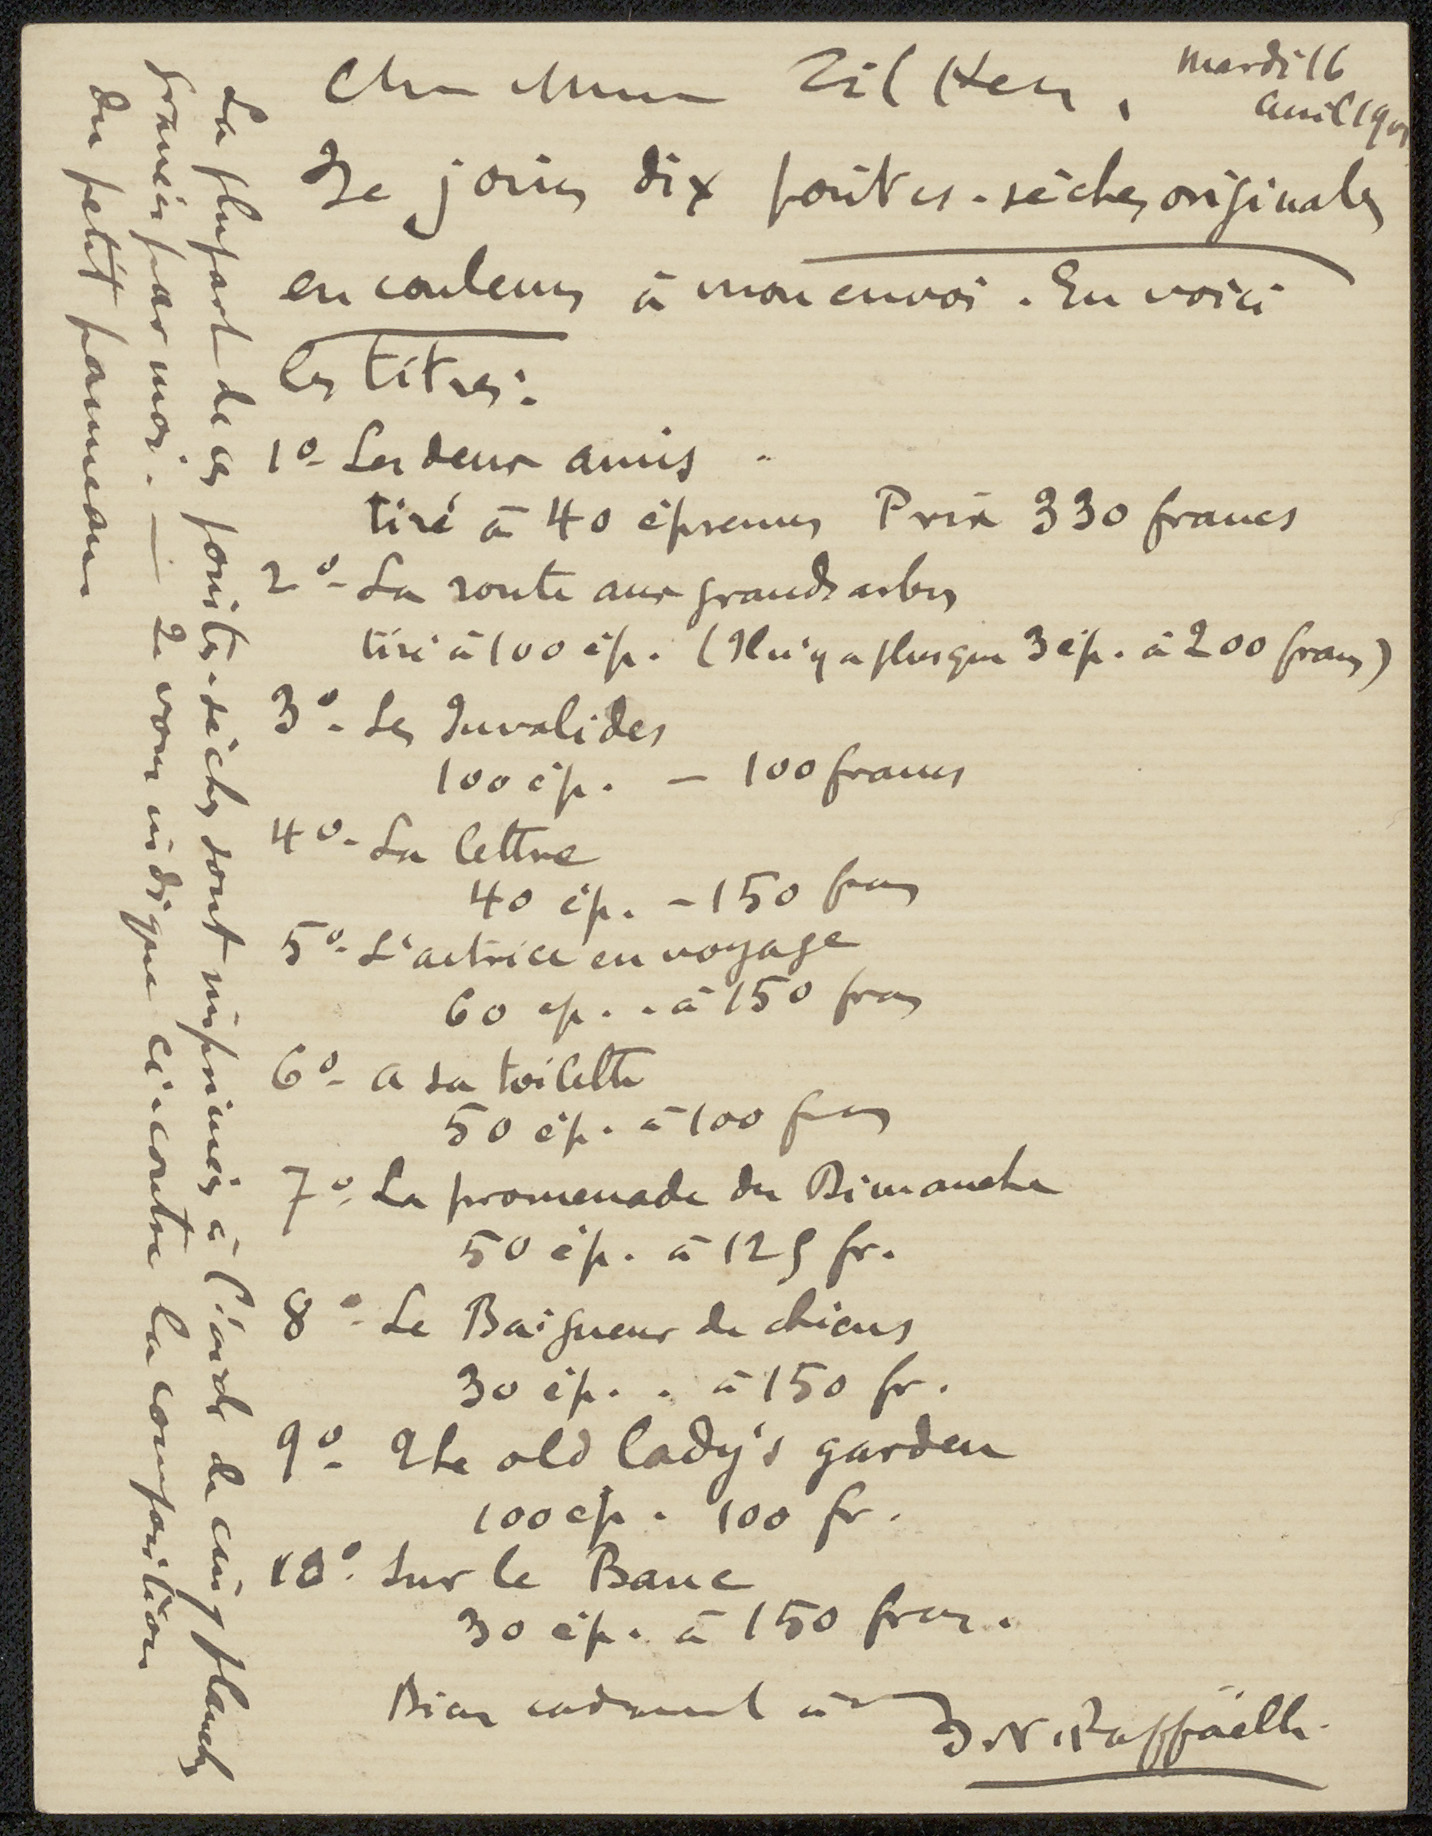 Cher Monsieur Zilcken,
Mardi 16
avril 1901
Je joins dix pointes-sèches originales
en couleurs à mon envoi. En voici
les titres:
1o- Les deux amis
tiré à 40 épreuves Prix 330 francs
2o- La route aux grands arbres
tiré à 100 ép. (Il n'y a plus que 3 ép. à 200 francs)
3o- Les Invalides
100 ép. - 100 francs
4o- La lettre
40 ép. - 150 francs
5o- L'actrice en voyage
60 ép. - à 150 francs
6o- A sa toilette
50 ép. à 100 francs
7o- La promenade du Dimanche
50 ép. à 125 fr.
8o- Le Baigneur de chiens
30 ép. . à 150 fr.
9o- The old lady's garden
100 ép. 100 fr.
10o- Sur le Banc
30 ép. à 150 francs.
Bien cordialement à vous
J.F. Raffaëlli.
La plupart de ces pointes-sèches sont imprimées à l'aide de cinq planches
gravées par moi. — Je vous indique ci-contre la composition
du petit panneau